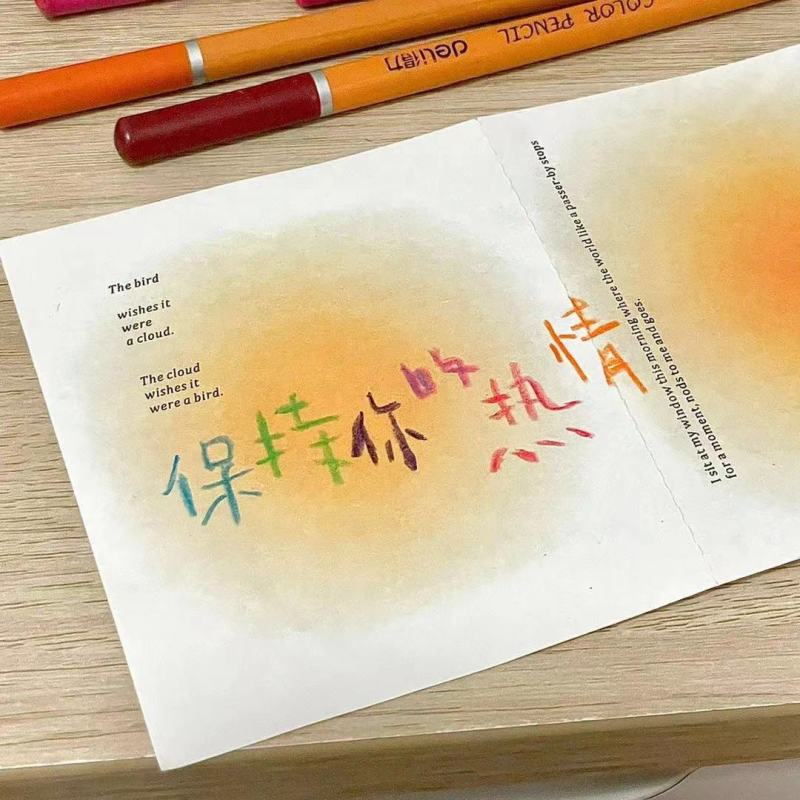 COLOR PENCIL deli得力
The bird
wishes it
were
a cloud.
The cloud
wishes it
were a bird.
保持你的热情
I sit at my window this morning where the world like a passer-by stops
for a moment, nods to me and goes.